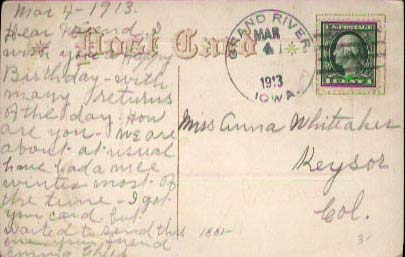 Mar 4 - 1913.
Dear Friend I
wish you a Happy
Birthday - with
many returns
of the day. How
are you - we are
about as usual
have had a nice
winter most of
the time - I got
your card. but
wanted to send this
your friend
Post Card
GRAND RIVER
MAR
4
1913
IOWA.
Miss Anna Whittaker
Keysor
Col.